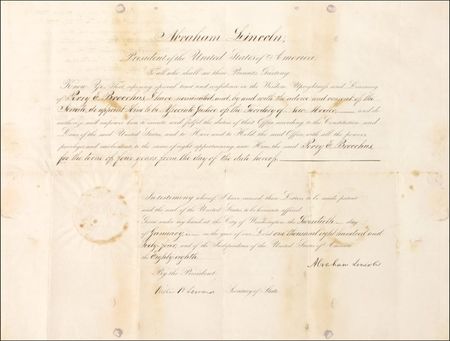 Abraham Lincoln,
President of the United States of America.
To all who shall see these Presents, Greeting:
Know Ye, That reposing special trust and confidence in the Wisdom, Uprightness and Learning
of Perry E. Brocchus, I have nominated, and, by and with the advice and consent of the
Senate, do appoint him to be Associate Justice of the Territory of New Mexico and do
authorize and empower him to execute and fulfil the duties of that Office according to the Constitution and
Laws of the said United States, and to Have and to Hold the said Office, with all the powers,
privileges and emoluments to the same of right appertaining unto Him, the said Perry E. Brocchus,
for the term of four years from the day of the date hereof.
In testimony whereof I have caused these Letters to be made patent
and the seal of the United States to be hereunto affixed.
Given under my hand at the City of Washington the Twentieth day
of January in the year of our Lord one thousand eight hundred and
sixty four, and of the Independence of the United States of America
the Eighty eighth.
Abraham Lincoln
By the President:
William H. Seward Secretary of State.